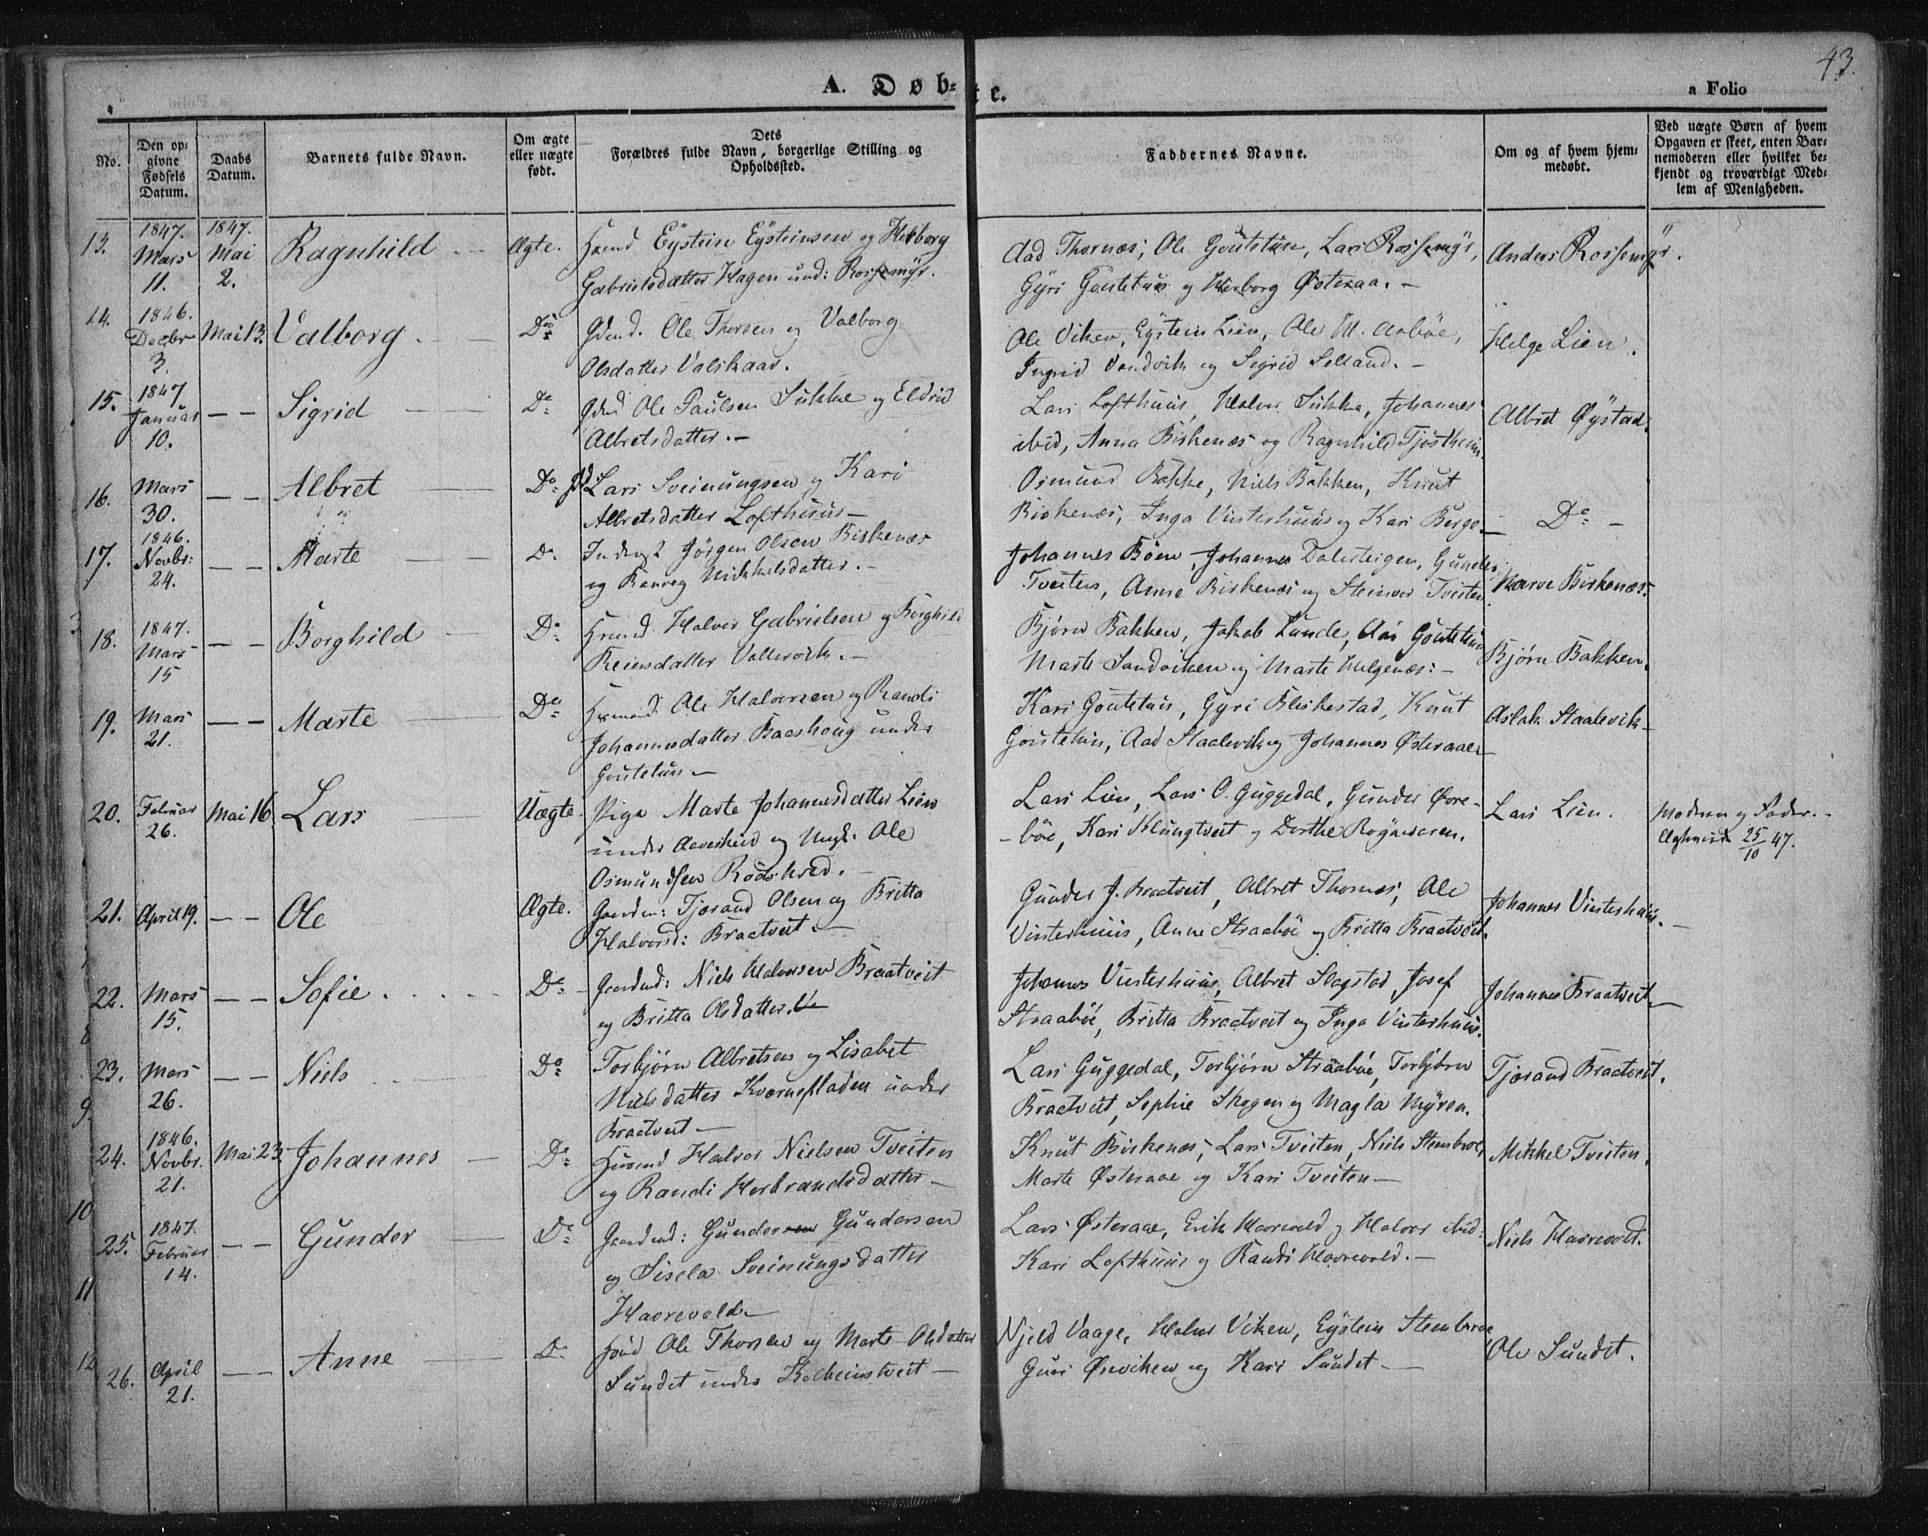 43.
A. Døb-te.
a Folio
No.
Den op-
givne
Fødsels
Datum.
Daabs
Datum.
Barnets fulde Navn.
Om ægte
eller uægte
født.
Dets
Forældres fulde Navn, borgerlige Stilling og
Opholdssted.
Faddernes Navne.
Om og af hvem hjem-
medøbt.
Ved uægte Børn af hvem
Opgaven er skeet, enten Bar-
nemoderen eller hvilket be-
kjendt og troværdigt Med-
lem af Menigheden.
13. 1847. Mars 11. 1847. Mai 2. Ragnhild Ægte. Huusmd Eÿstein Eÿsteinsen og Herborg
Gabrielsdatter Hagen und: Rossemÿr.
Aad Thornæs, Ole Goutetun, Lars Rossemÿr,
Gÿri Goutetun og Herborg Østeraa. -
Anders Rossemÿr.
14. 1846. Decbr 3. Mai 13. Valborg Do Gdmd. Ole Thorsen og Valborg
Olsdatter Valskaar.
Ole Viken, Eÿstein Lien, Ole M. Aabøe,
Ingrid Sandvik og Sigrid Selland. -
Helge Lien.
15. 1847 Januar 10. - - Sigrid Do Gdmd Ole Paulsen Sukke og Eldrid
Albretsdatter. -
Lars Lofthuus, Halvor Sukke, Johannes
ibid, Anna Birkenæs og Ragnhild Tjostheim.
Albret Øÿstad.
16. Mars 30. - - Albret Do Gdm Lars Sveinungsen og Kari
Albretsdatter Lofthuus -
Osmund Bakke, Niels Bakken, Knut
Birkenæs, Inga Vinterhuus og Kari Berge -
Do -
17. 1846. Novbr: 24. - - Marte Do Inderst Jørgen Olsen Birkenæs
og Ranveg Mikkelsdatter. -
Johannes Bøen, Johannes Dalesteigen, Gunder
Tveiten, Anne Birkenæs og Steinvor Tveiten.
Narve Birkenæs.
18. 1847. Mars 15 - - Borghild Do Huusmd Halvor Gabrielsen og Borghild
Reiersdatter Vallevik. -
Bjørn Bakken, Jakob Lunde, Aas Goutetun
Marte Sandviken og Marte Helgenæs: -
Bjørn Bakken.
19. Mars 21. - - Marte Do Huusmd Ole Halvorsen og Randi
Johannesdatter Baashoug under
Goutetun -
Kari Goutetun, Gÿri Bleskestad, Knut
Goutetun, Aad Staalevik og Johannes Østeraae -
Aslak Staalevik -
20. Februar 26. Mai 16. Lars Uægte. Pige Marte Johannesdatter Lien
under Aaveshed og Ungk. Ole
Osmundsen
Lars Lien, Lars O. Guggedal, Gunder Øvre-
-bøe, Kari Klungtveit og Dorthe
Lars Lien.
Modren og Fader. -
25/10 47.
21. April 19. - - Ole Ægte. Gaardm: Tjørand Olsen og Britta
Halvorsd: Braatveit. -
Gunder J. Braatveit, Albret Thornæs, Ole
Vinterhuus, Anne Straabøe og Britta Braatveit.
Johannes Vinterhuus. -
22. Mars 15. - - Sofie Do Gaardmd: Niels Halvorsen Braatveit
og Britta Olsdatter.
Johannes Vinterhuus, Albret Slagstad, Josef
Straabøe, Britta Braatveit og Inga Vinterhuus.
Johannes Braatveit -
23. Mars 26. - - Niels Do Torbjørn Albretsen og Lisabet
Nielsdatter Kværnefladen under
Braatveit -
Lars Guggedal, Torbjørn Straabøe, Torbjørn
Braatveit, Sophie Skogen og Magla Mÿren.
Tjørand Braatveit.
24. 1846. Novbr. 21. Mai 23 Johannes Do Huusmd Halvor Nielsen Tveiten
og Randi Herbrandsdatter -
Knut Birkenæs, Lars Tveiten, Niels Stenbroe,
Marte Østeraae og Kari Tveiten -
Mikkel Tveiten.
25. 1847. Februar 14. - - Gunder Do Gaardmd: Gunder Gundersen
og Sisela Sveinungsdatter
Havrevold -
Lars Østeraae, Erik Havrevold og Halvor ibid:
Kari Lofthuus og Randi Havrevold. -
Niels Havrevold.
26. April 21. - - Anne Do Ole Thorsen og Marte Olsdatter
Sundet under Kolbeinstveit -
Njeld Vaage, Halvor Viken, Eÿstein Stenbroe
Guri Ørviken og Kari Sundet -
Ole Sundet.